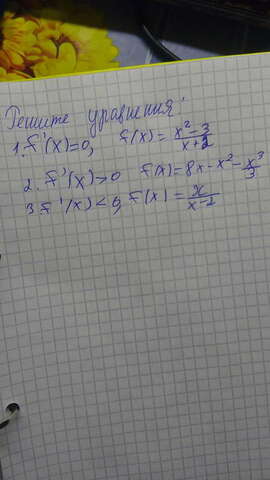 Решите уравнения:
1. f'(x)=0, f(x) = (x²-3)/(x+2)
2. f'(x)>0 f(x) = 8x - x² - x³/3
3. f'(x) < 0, f(x) = x/(x-2)